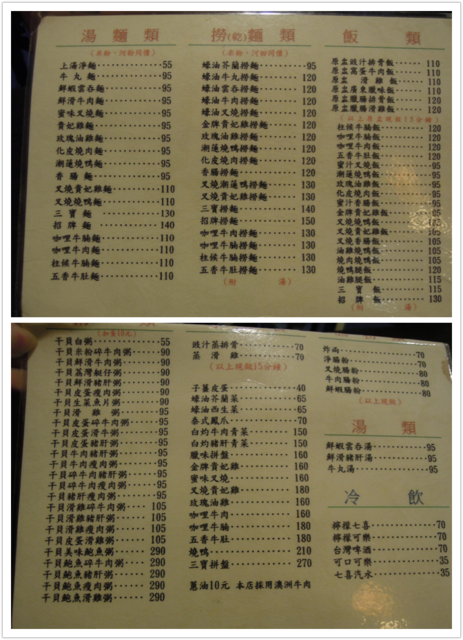 湯麵類
(米粉、河粉同價)
上湯淨麵 55
牛丸麵 95
鮮蝦雲吞麵 95
鮮滑牛肉麵 95
蜜味叉燒麵 95
貴妃雞麵 95
玫瑰油雞麵 95
潮蓮燒鴨麵 95
化皮燒肉麵 95
香腸麵 95
叉燒貴妃雞麵 110
叉燒燒鴨麵 110
三寶麵 130
招牌麵 140
咖哩牛腩麵 110
咖哩牛肉麵 110
柱候牛腩麵 110
五香牛肚麵 110
撈(乾)麵類
(米粉、河粉同價)
蠔油芥蘭撈麵 95
蠔油牛丸撈麵 120
蠔油雲吞撈麵 120
蠔油牛肉撈麵 120
蠔油叉燒撈麵 120
金牌貴妃雞撈麵 120
玫瑰油雞撈麵 120
潮蓮燒鴨撈麵 120
化皮燒肉撈麵 120
蠔油香腸撈麵 120
叉燒潮蓮燒鴨撈麵 130
叉燒貴妃雞撈麵 130
三寶撈麵 140
招牌撈麵 150
咖哩牛肉撈麵 130
咖哩牛腩撈麵 130
柱候牛腩撈麵 130
五香牛肚撈麵 130
(附湯)
飯類
原盅豉汁排骨飯 110
原盅窩蛋牛肉飯 110
原盅滑雞飯 110
原盅廣東臘味飯 110
原盅臘腸排骨飯 120
原盅臘腸滑雞飯 120
(以上原盅現飯15分鐘)
柱候牛腩飯 120
咖哩牛腩飯 120
咖哩牛肉飯 120
五香牛肚飯 120
蜜汁叉燒飯 95
潮蓮燒鴨飯 95
玫瑰油雞飯 95
化皮燒肉飯 95
蜜汁香腸飯 95
金牌貴妃雞飯
叉燒燒鴨飯
叉燒貴妃雞飯
叉燒香腸飯 105
油雞燒鴨飯 105
燒肉燒鴨飯 105
燒鴨腿飯 120
油雞腿飯 115
三寶飯 115
招牌飯 130
(附湯)
(加蛋10元)
干貝白粥 55
干貝米粉碎牛肉粥 90
干貝鮮滑牛肉粥 90
干貝荔灣艇仔粥 90
干貝鮮滑豬肝粥 90
干貝皮蛋瘦肉粥 90
干貝生菜魚片粥 90
干貝滑雞粥 90
干貝皮蛋碎牛肉粥 90
干貝皮蛋滑牛粥 90
干貝皮蛋豬肝粥 90
干貝牛肉豬肝粥 90
干貝牛肉瘦肉粥 90
干貝碎牛肉豬肝粥 90
干貝碎牛肉瘦肉粥 90
干貝豬肝瘦肉粥 90
干貝滑雞碎牛肉粥 105
干貝滑雞豬肝粥 105
干貝滑雞瘦肉粥 105
干貝皮蛋滑雞粥 105
干貝美味鮑魚粥 290
干貝鮑魚碎牛肉粥 290
干貝鮑魚豬肝粥 290
干貝鮑魚瘦肉粥 290
干貝鮑魚滑雞粥 290
豉汁蒸排骨 70
蒸滑雞 70
(以上現飯15分鐘)
子薑皮蛋 40
蠔油芥蘭菜 65
蠔油西生菜 65
泰式鳳爪 70
白灼牛肉青菜 150
白灼豬肝青菜 150
臘味拼盤 160
金牌貴妃雞 160
蜜味叉燒 160
叉燒貴妃雞 180
玫瑰油雞 160
咖哩牛肉 160
咖哩牛腩 180
五香牛肚 180
燒鴨 210
三寶拼盤 270
蔥油10元 本店採用澳洲牛肉
炸兩 70
淨腸粉 70
叉燒腸粉 80
牛肉腸粉 80
鮮蝦腸粉 80
(以上現飯)
湯類
鮮蝦雲吞湯 95
鮮滑豬肝湯 95
牛丸湯 95
冷飲
檸檬七喜 70
檸檬可樂 70
台灣啤酒 70
可口可樂 35
七喜汽水 35